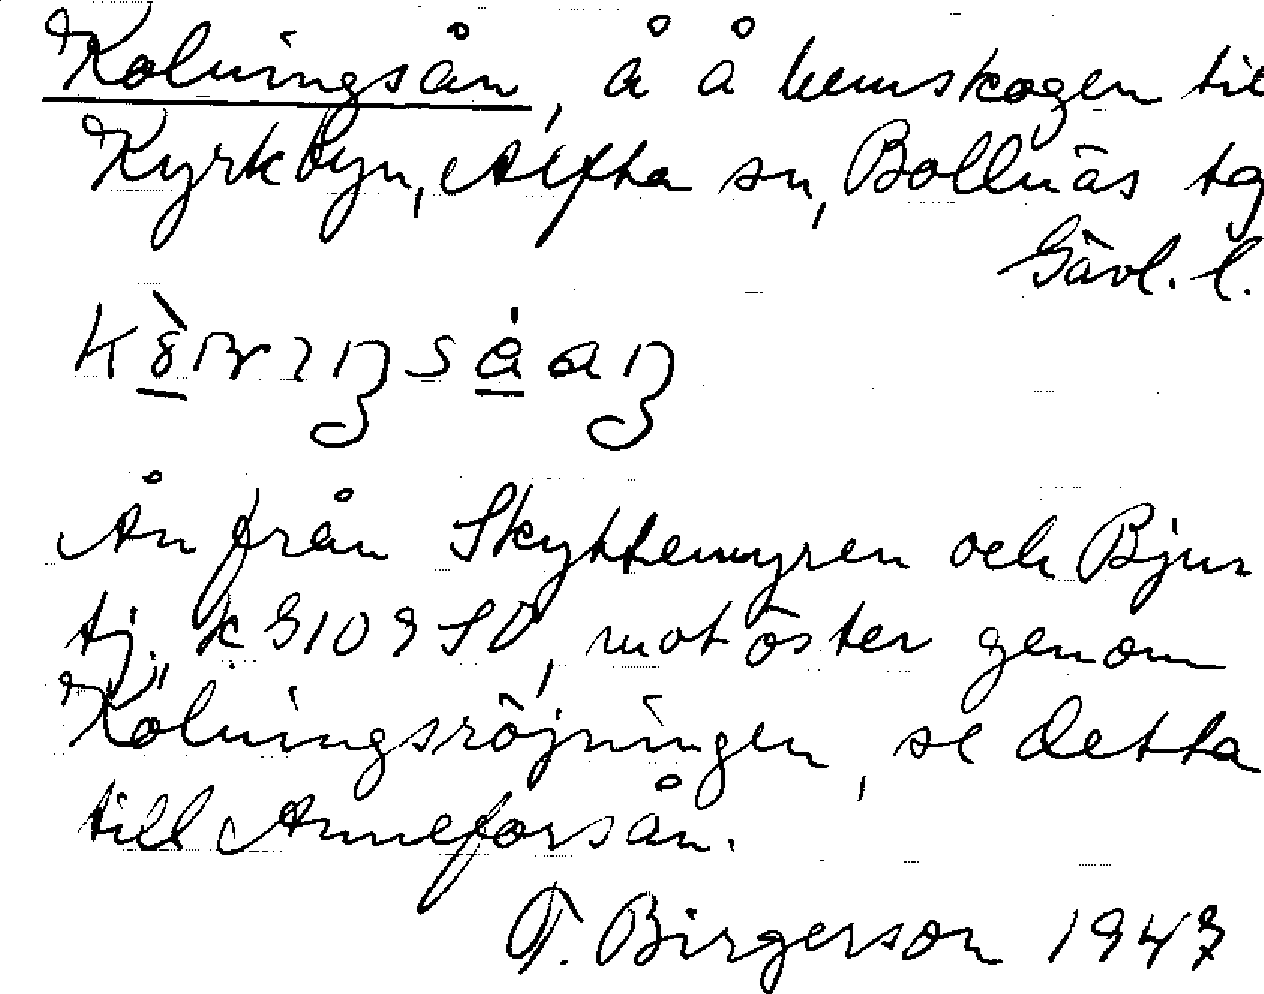 Kolningsån, å å hemskogen til
Kyrkbyn, Alfta sn, Bollnäs tg
Gävl. l.
Ån från Skyttemyren och Bjur
tj., k 9109 SO, mot öster genom
Kölningsröjningen, se detta
till Anneforsån.
T. Birgerson 1947